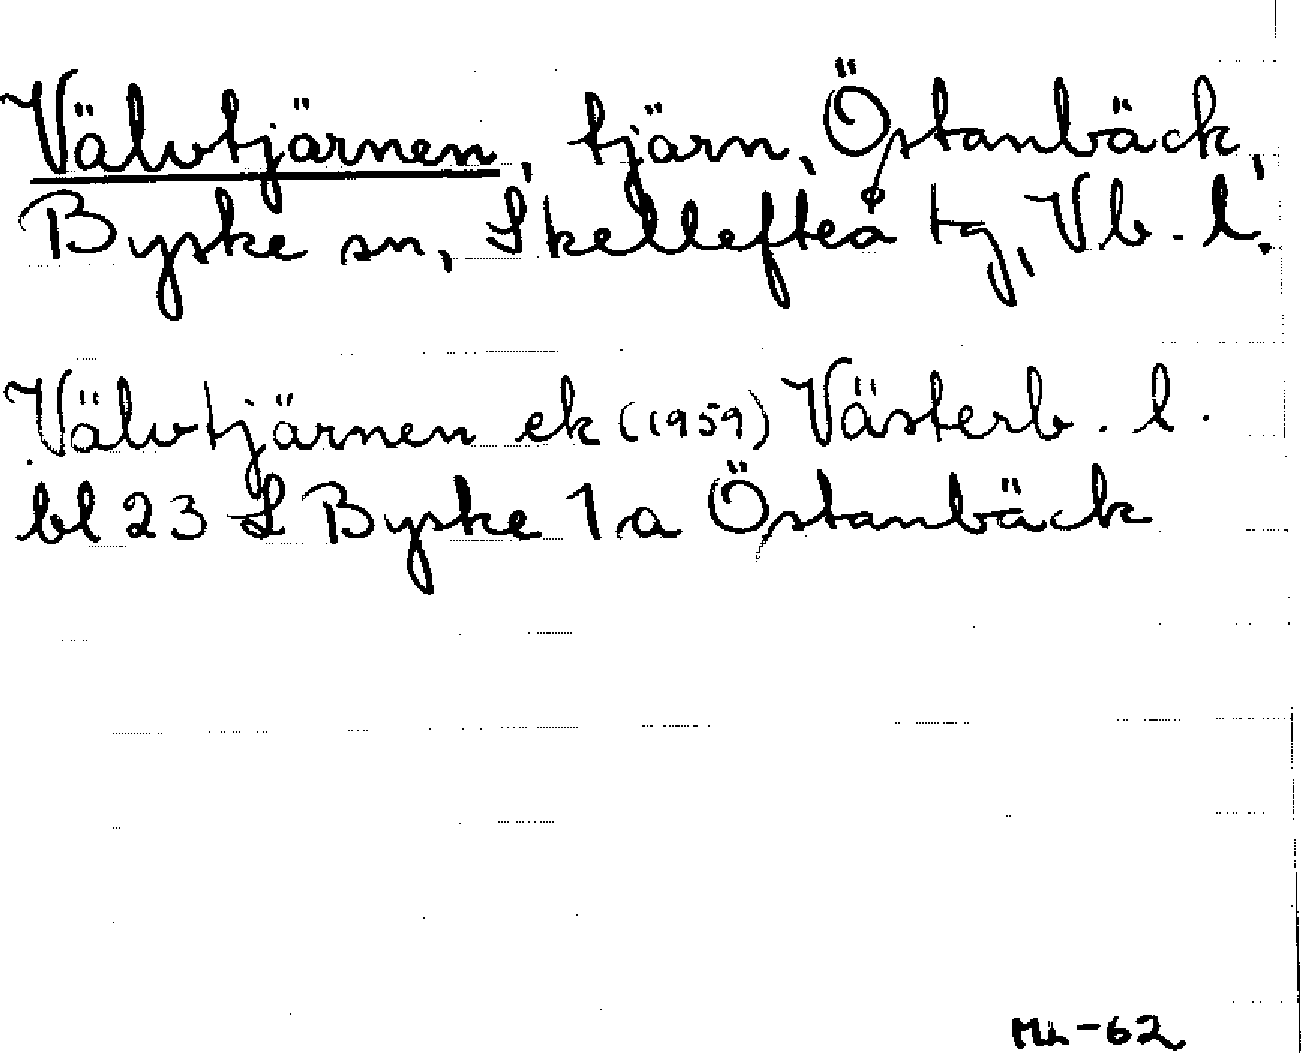 Välvtjärnen, tjärn, Östanbäck,
Byske sn, Skellefteå tg, Vb. l.
Välvtjärnen ek (1959) Västerb. l.
bl 23 L Byske 1 a Östanbäck
ML-62